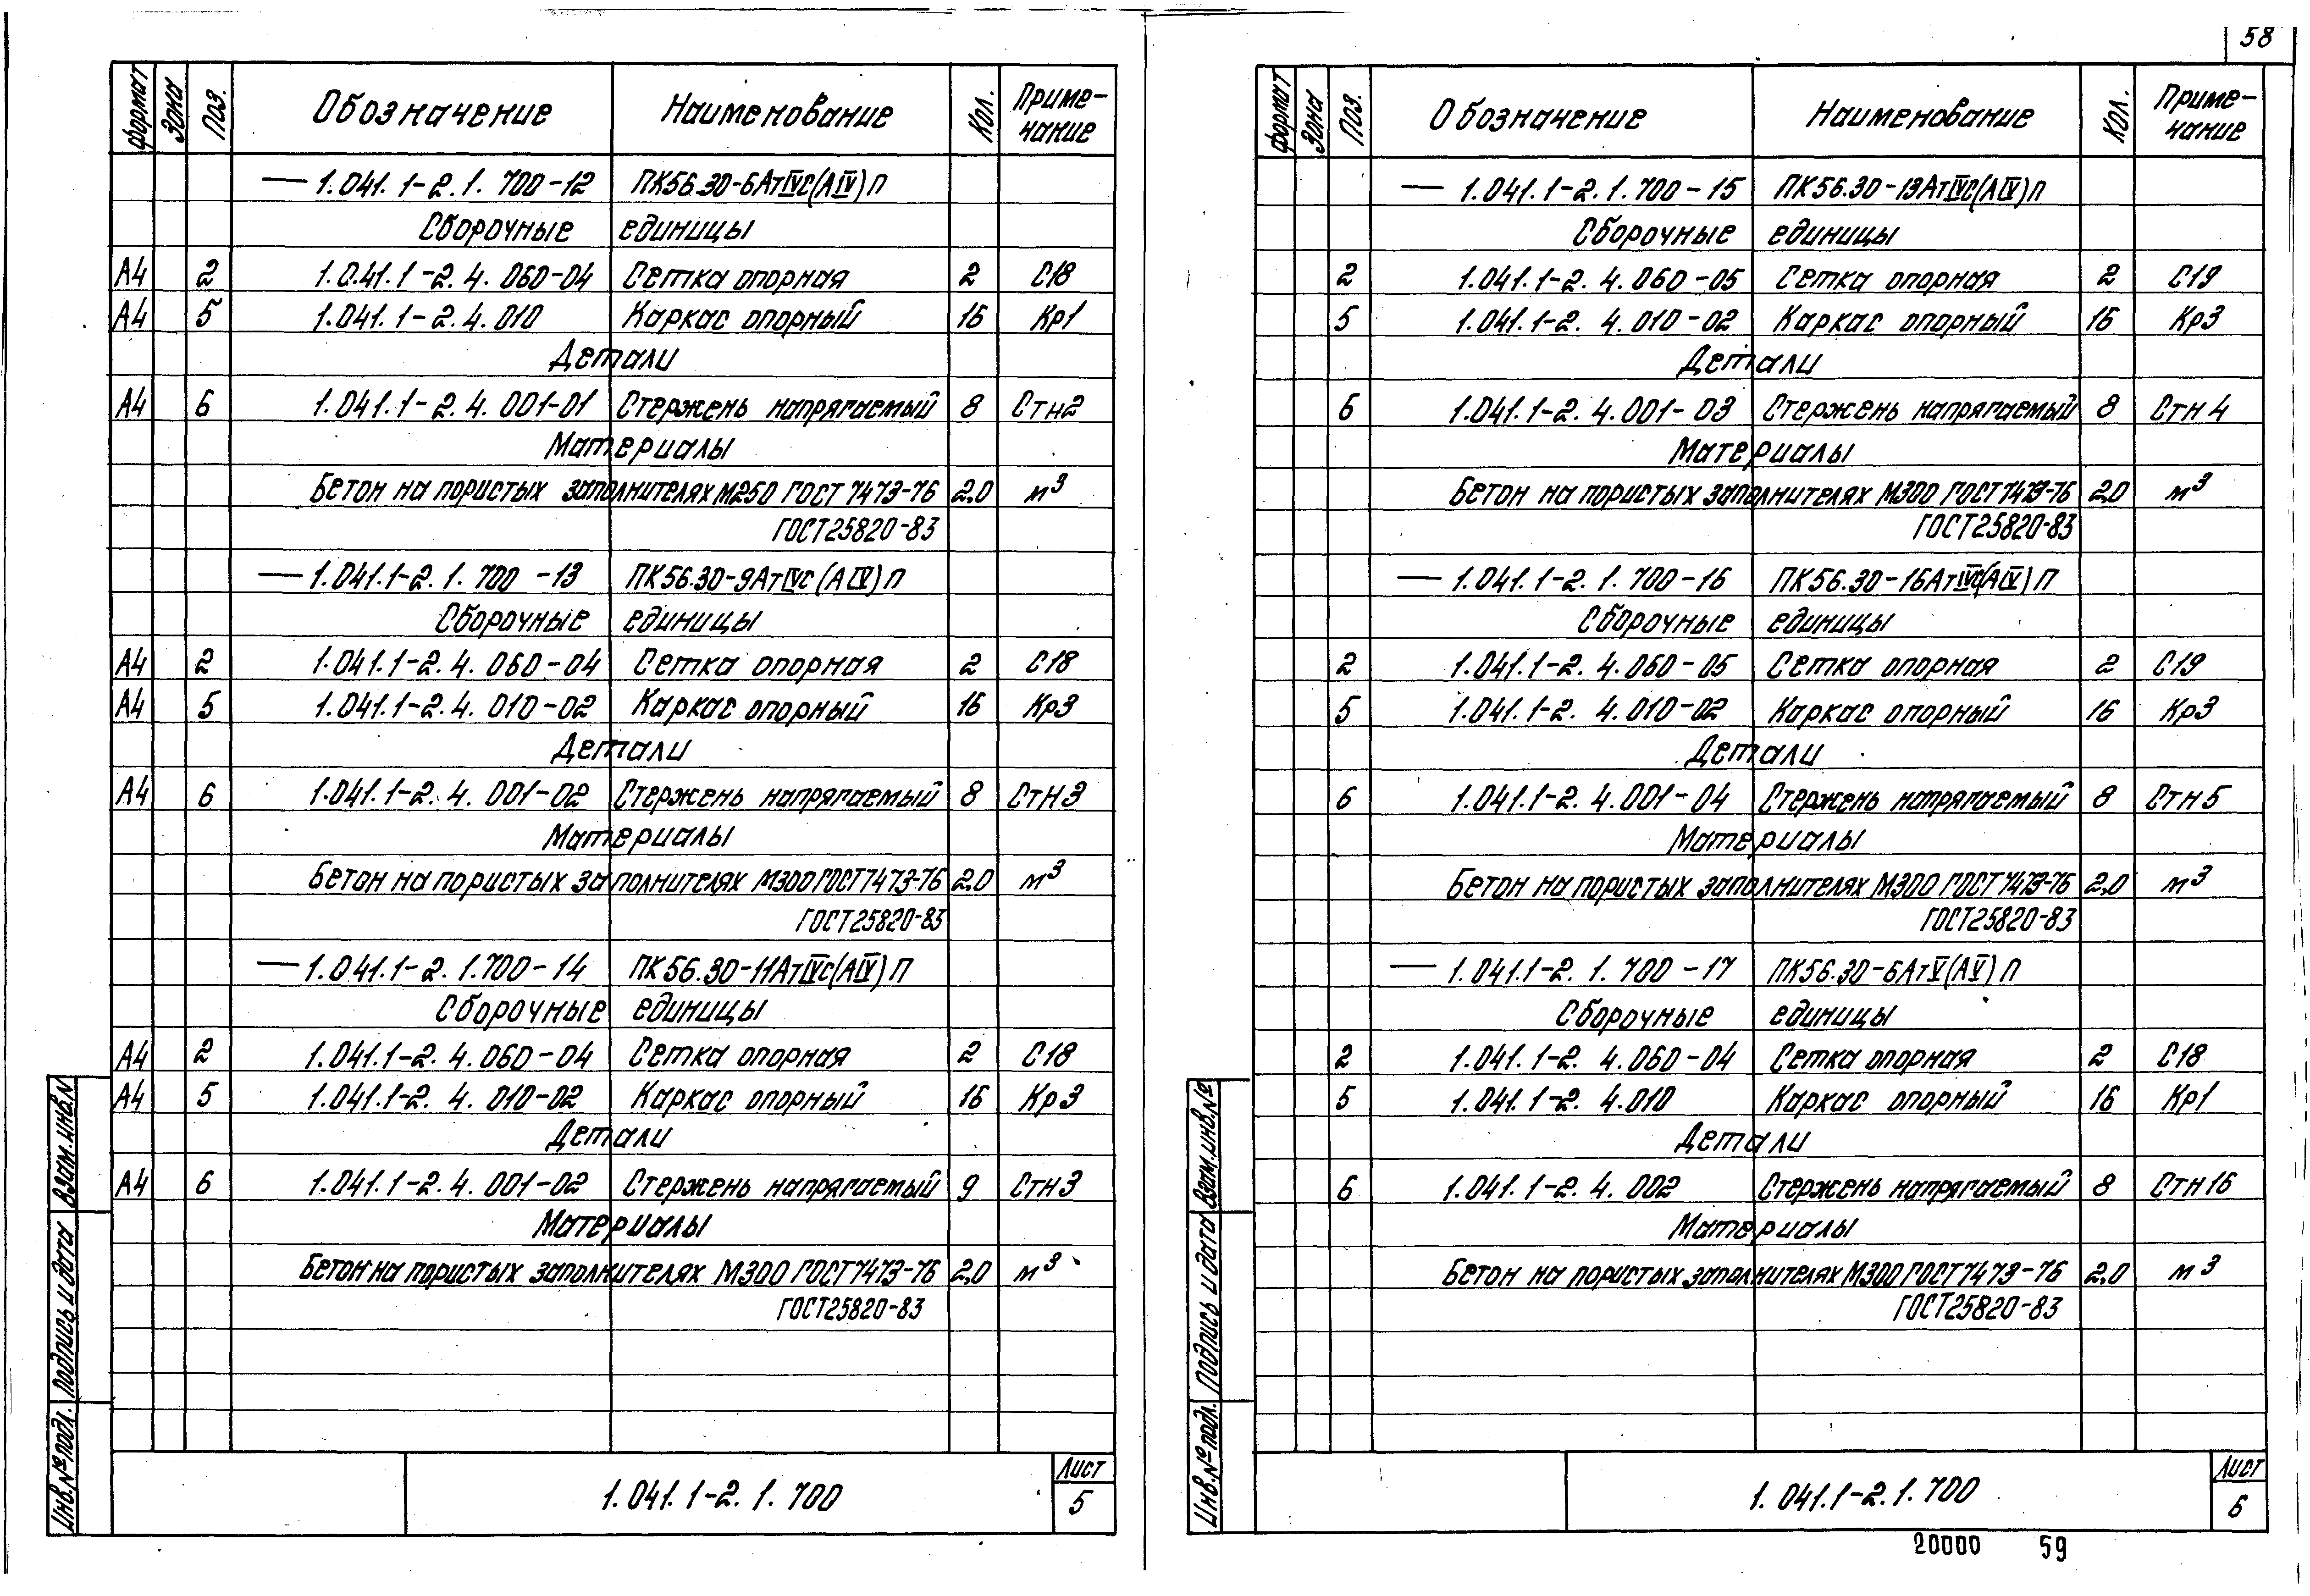 58
формат Зона Поз. Обозначение Наименование Кол. Приме-
чание
— 1.041.1-2.1.700-12 ПК56.30-6АтIVс(АIV)п
Сборочные единицы
А4 2 1.041.1-2.4.060-04 Сетка опорная 2 С18
А4 5 1.041.1-2.4.010 Каркас опорный 16 Кр1
Детали
А4 6 1.041.1-2.4.001-01 Стержень напрягаемый 8 Стн2
Материалы
Бетон на пористых заполнителях М250 ГОСТ 7473-76 2,0 м³
ГОСТ25820-83
— 1.041.1-2.1.700-13 ПК56.30-9АтIVс(АIV)п
Сборочные единицы
А4 2 1.041.1-2.4.060-04 Сетка опорная 2 С18
А4 5 1.041.1-2.4.010-02 Каркас опорный 16 Кр3
Детали
А4 6 1.041.1-2.4.001-02 Стержень напрягаемый 8 Стн3
Материалы
Бетон на пористых заполнителях М300 ГОСТ 7473-76 2,0 м³
ГОСТ25820-83
— 1.041.1-2.1.700-14 ПК56.30-11АтIVс(АIV)п
Сборочные единицы
А4 2 1.041.1-2.4.060-04 Сетка опорная 2 С18
А4 5 1.041.1-2.4.010-02 Каркас опорный 16 Кр3
Детали
А4 6 1.041.1-2.4.001-02 Стержень напрягаемый 9 Стн3
Материалы
Бетон на пористых заполнителях М300 ГОСТ 7473-76 2,0 м³
ГОСТ25820-83
Взам.инв.N
Подпись и дата
Инв.№подл.
1.041.1-2.1.700
Лист
5
формат Зона Поз. Обозначение Наименование Кол. Приме-
чание
— 1.041.1-2.1.700-15 ПК56.30-13АтIVс(АIV)п
Сборочные единицы
2 1.041.1-2.4.060-05 Сетка опорная 2 С19
5 1.041.1-2.4.010-02 Каркас опорный 16 Кр3
Детали
6 1.041.1-2.4.001-03 Стержень напрягаемый 8 Стн4
Материалы
Бетон на пористых заполнителях М300 ГОСТ 7473-76 2,0 м³
ГОСТ25820-83
— 1.041.1-2.1.700-16 ПК56.30-16АтIVс(АIV)п
Сборочные единицы
2 1.041.1-2.4.060-05 Сетка опорная 2 С19
5 1.041.1-2.4.010-02 Каркас опорный 16 Кр3
Детали
6 1.041.1-2.4.001-04 Стержень напрягаемый 8 Стн5
Материалы
Бетон на пористых заполнителях М300 ГОСТ 7473-76 2,0 м³
ГОСТ25820-83
— 1.041.1-2.1.700-17 ПК56.30-6АтV(АV)п
Сборочные единицы
2 1.041.1-2.4.060-04 Сетка опорная 2 С18
5 1.041.1-2.4.010 Каркас опорный 16 Кр1
Детали
6 1.041.1-2.4.002 Стержень напрягаемый 8 Стн16
Материалы
Бетон на пористых заполнителях М300 ГОСТ 7473-76 2,0 м³
ГОСТ25820-83
Взам.инв.№
Подпись и дата
Инв.№подл.
1.041.1-2.1.700
Лист
6
20000 59